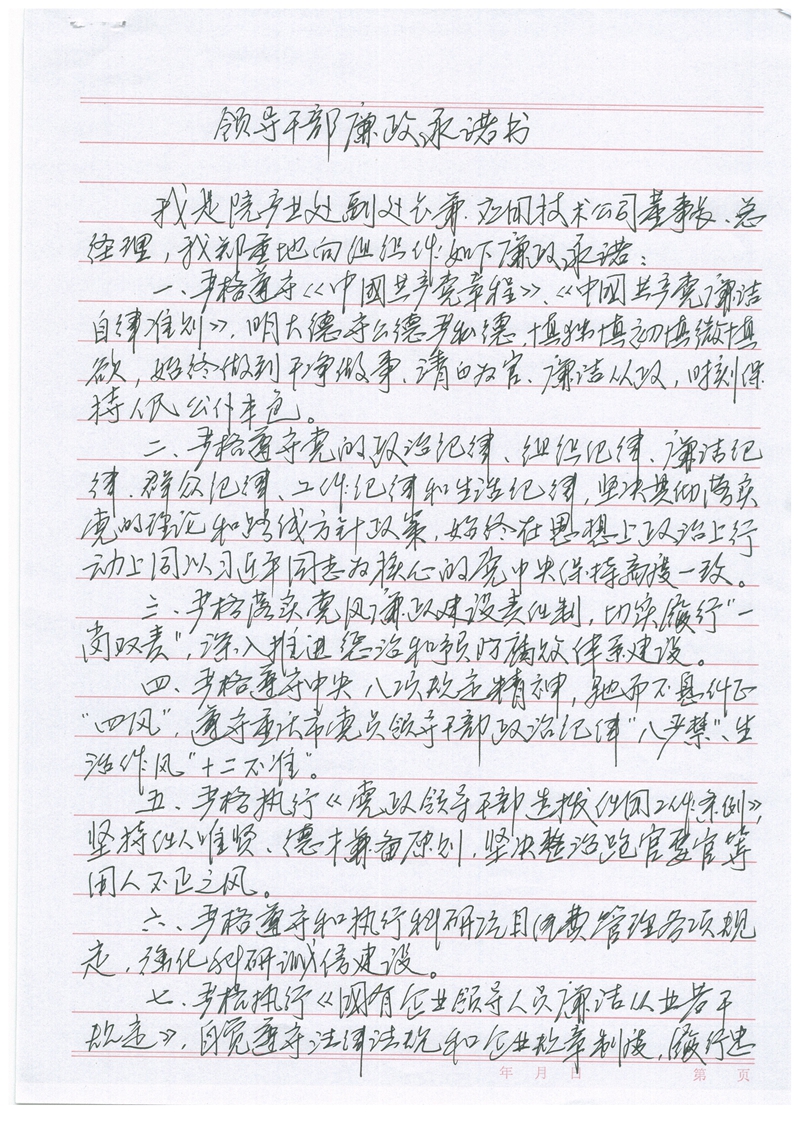 领导干部廉政承诺书
我是院产业处副处长兼应用技术公司董事长、总
经理，我郑重地向组织作如下廉政承诺：
一、严格遵守《中國共产党章程》、《中國共产党廉洁
自律准则》，明大德守公德严私德，慎独慎初慎微慎
欲，始终做到干净做事、清白为官、廉洁从政，时刻保
持人民公仆本色。
二、严格遵守党的政治纪律、组织纪律、廉洁纪
律、群众纪律、工作纪律和生活纪律，坚决贯彻落实
党的理论和路线方针政策，始终在思想上政治上行
动上同以习近平同志为核心的党中央保持高度一致。
三、严格落实党风廉政建设责任制，切实履行“一
岗双责”，深入推进惩治和预防腐败体系建设。
四、严格遵守中央八项规定精神，驰而不息纠正
“四风”，遵守重庆市党员领导干部政治纪律“八严禁”、生
活作风“十二不准”。
五、严格执行《党政领导干部选拔任用工作条例》，
坚持任人唯贤、德才兼备原则，坚决整治跑官要官等
用人不正之风。
六、严格遵守和执行科研项目经费管理各项规
定，强化科研诚信建设。
七、严格执行《國有企业领导人员廉洁从业若干
规定》，自觉遵守法律法规和企业规章制度，履行忠
年 月 日
第 页